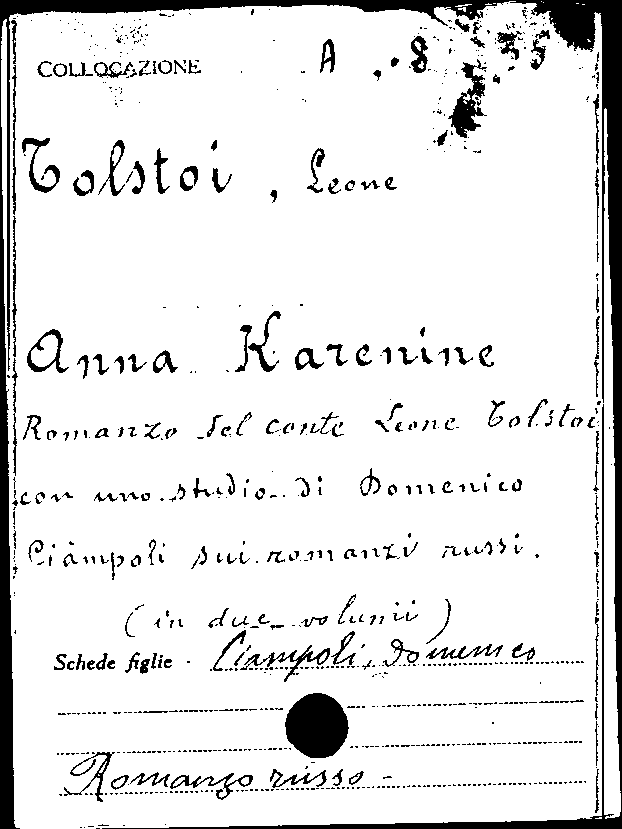 COLLOCAZIONE A . 8
Tolstoi , Leone
Anna Karenine
Romanzo del conte Leone Tolstoi
con uno studio di Domenico
Ciàmpoli sui romanzi russi.
(in due volumi)
Schede figlie - Ciampoli, Domenico
Romanzo russo -